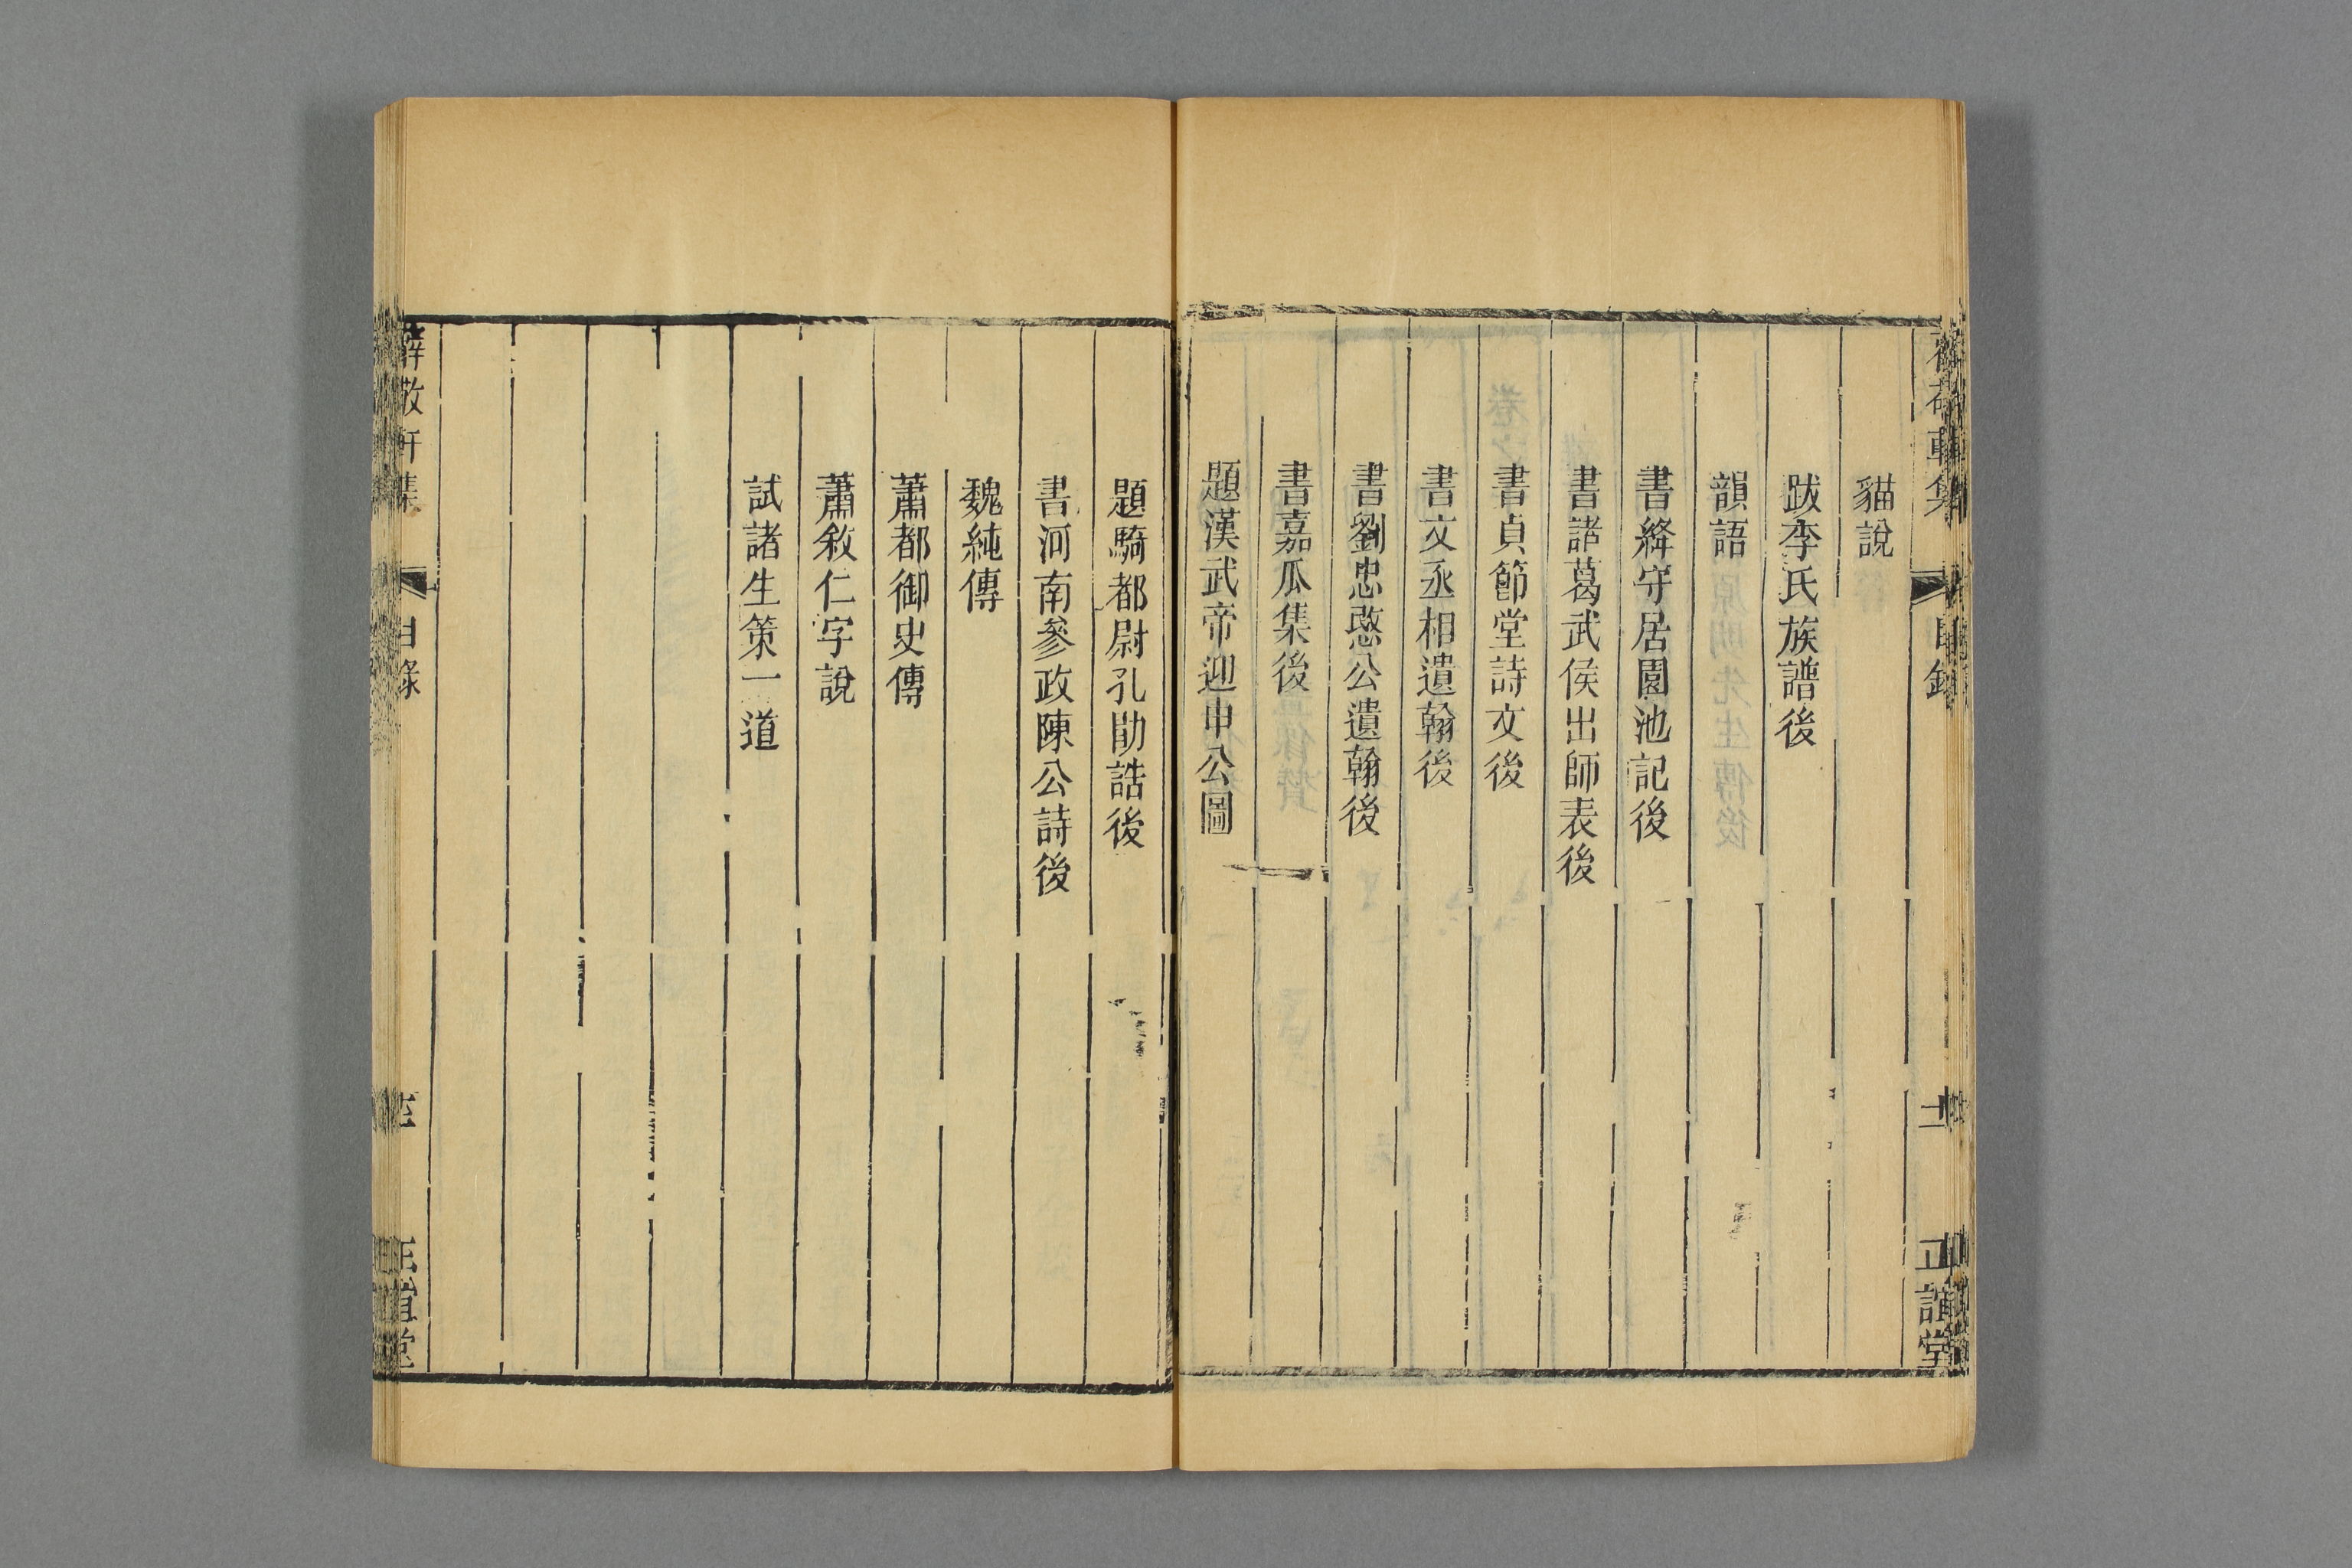 貓說
跋李氏族譜後
韻語
書絳守居園池記後
書諸葛武侯出師表後
書貞節堂詩文後
書文丞相遺翰後
書劉忠愍公遺翰後
書嘉瓜集後
題漢武帝迎申公圖
題騎都尉孔勛誥後
書河南參政陳公詩後
魏純傳
蕭都御史傳
蕭敘仁字說
試諸生策一道
薛敬軒集
目錄
正誼堂